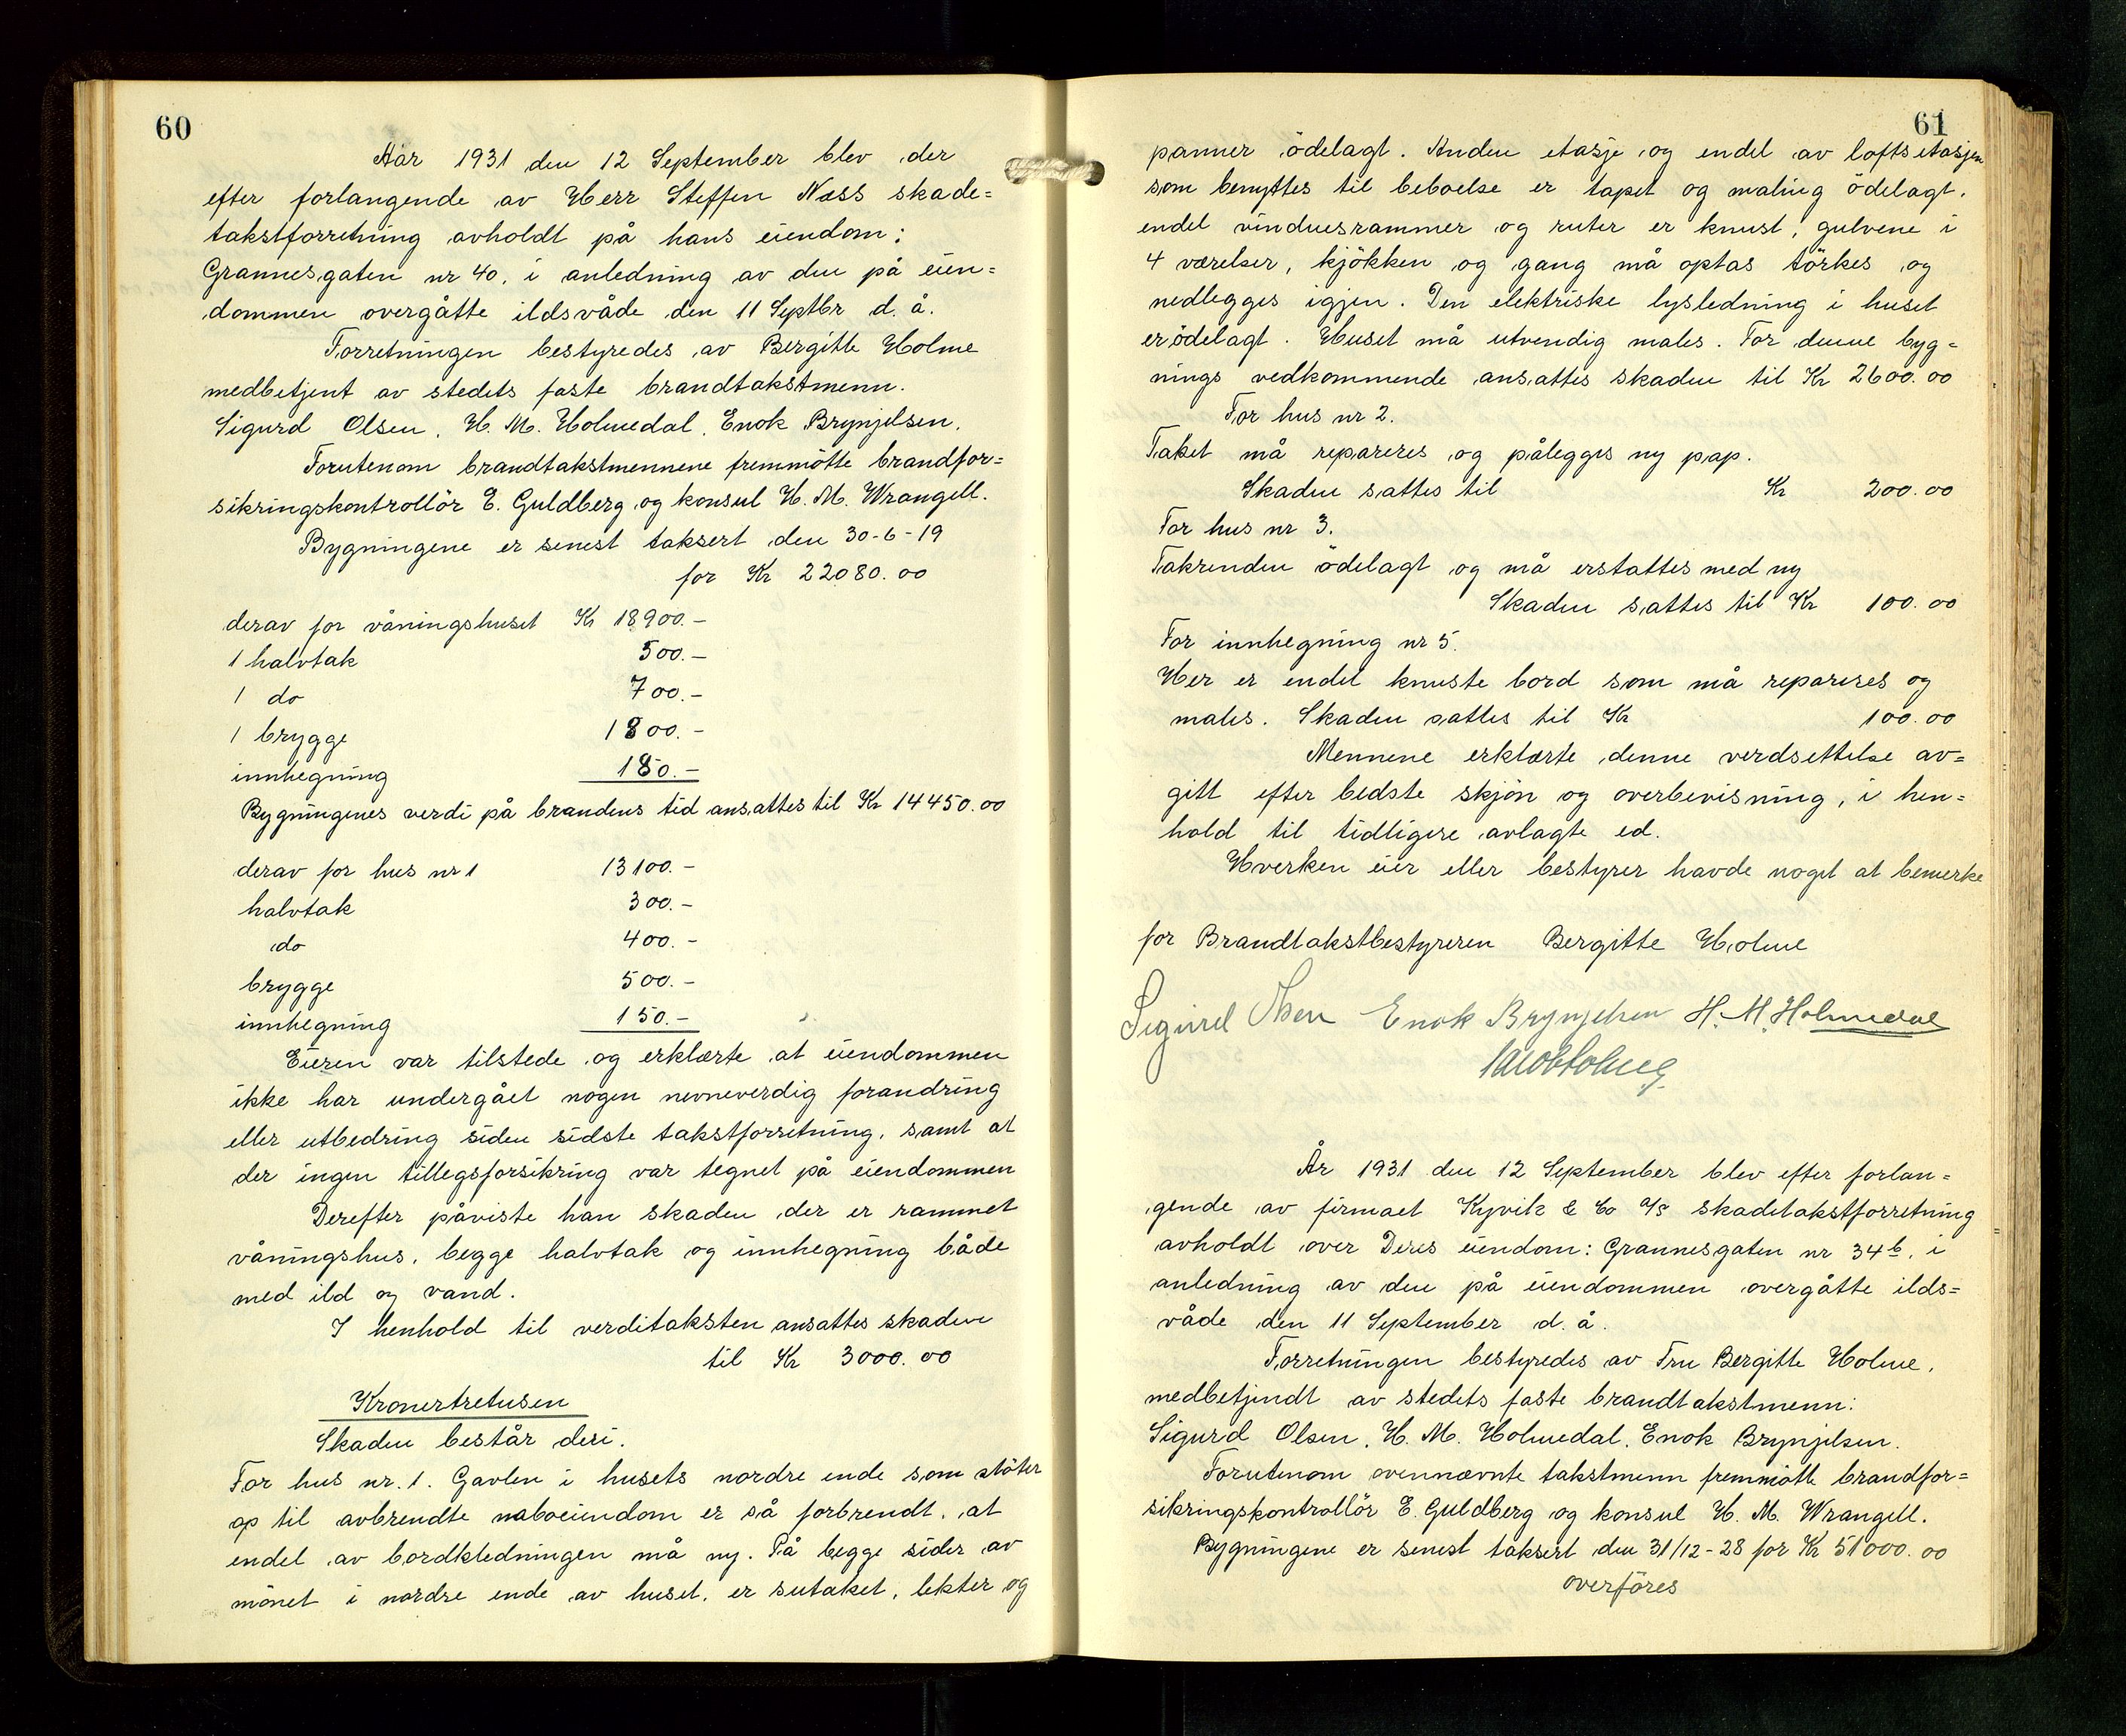 60
Aar 1931 den 12 September blev der
efter forlangende av Herr Steffen Næss skade=
takstforretning avholdt på hans eiendom:
Grannesgaten nr 40, i anledning av den på eien=
dommen overgåtte ildsvåde den 11 Septbr d. å.
Forretningen bestyredes av Bergitte Holme
medbetjent av stedets faste brandtakstmenn.
Sigurd Olsen, H. M. Holmedal, Enok Brynjelsen.
Forutenom brandtakstmennene fremmötte brandfor=
sikringskontrollör E. Guldberg og konsul H. M. Wrangell.
Bygningene er senest taksert den 30-6-19
for Kr 22080.00
derav for våningshuset Kr 18900.-
1 halvtak 500.-
1 do 700.-
1 brygge 1800.-
innhegning 180.-
Bygningenes verdi på brandens tid ansattes til Kr 14450.00
derav for hus nr 1 13100.-
halvtak 300.-
do 400.-
brygge 500.-
innhegning 150.-
Eieren var tilstede og erklærte at eiendommen
ikke har undergået nogen nevneverdig forandring
eller utbedring siden sidste takstforretning, samt at
der ingen tillegsforsikring var tegnet på eiendommen
Derefter påviste han skaden der er rammet
våningshus, begge halvtak og innhegning både
med ild og vand.
I henhold til verditaksten ansattes skaden
til Kr 3000.00
Kronertretusen
Skaden består deri.
For hus nr. 1. Gavlen i husets nordre ende som stöter
op til avbrendte naboeiendom er så forbrendt, at
endel av bordkledningen må ny. På begge sider av
mönet i nordre ende av huset, er sutaket, lekter og
61
panner ödelagt. Anden etasje og endel av loftsetasjen
som benyttes til beboelse er tapet og maling ödelagt,
endel vinduesrammer og ruter er knust, gulvene i
4 værelser, kjökken og gang må optas törkes og
nedlegges igjen. Den elektriske lysledning i huset
er ödelagt. Huset må utvendig males. For denne byg=
nings vedkommende ansattes skaden til Kr 2600.00
For hus nr 2.
Taket må repareres og pålegges ny pap.
Skaden sattes til Kr 200.00
For hus nr 3.
Takrenden ödelagt og må erstattes med ny
Skaden sattes til Kr 100.00
For innhegning nr 5.
Her er endel knuste bord som må repareres og
males. Skaden sattes til Kr 100.00
Mennene erklærte denne verdsettelse av=
gitt efter bedste skjön og overbevisning, i hen=
hold til tidligere avlagte ed.
Hverken eier eller bestyrer havde noget at bemerke
for Brandtakstbestyreren Bergitte Holme
Sigurd Olsen Enok Brynjelsen H. M. Holmedal
År 1931 den 12 September blev efter forlan=
gende av firmaet Kyvik & Co A/S skadetakstforretning
avholdt over Deres eiendom: Grannesgaten nr 34b, i
anledning av den på eiendommen overgåtte ilds=
våde den 11 September d. å.
Forretningen bestyredes av Fru Bergitte Holme,
medbetjendt av stedets faste brandtakstmenn:
Sigurd Olsen, H. M. Holmedal, Enok Brynjelsen.
Forutenom ovennævnte takstmenn fremmötte brandfor=
sikringskontrollör E. Guldberg og konsul H. M. Wrangell.
Bygningene er senest taksert den 31/12-28 for Kr 51000.00
overföres